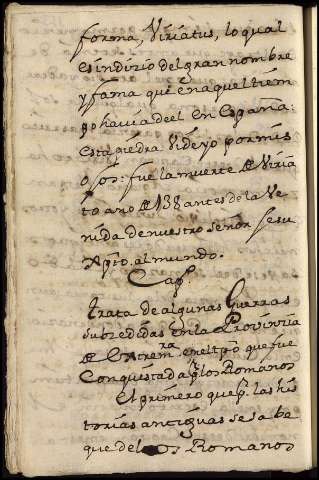 forma, Viriatus, lo qual
es indicio del gran nombre
y fama que en aquel tiem
po havia de el en España:
esta piedra vide yo por mis
ojos: fue la muerte de Viria
to año de 138 antes de la Ve
nida de nuestro señor Jesu
Xpto. al mundo.
Capº
trata de algunas Guerras
subcedidas en la Provinvia
de Extremra. en el tpo que fue
Conquistada pr. los Romanos
El primero que pr. las his
torias antiguas se sabe
que de los Romanos